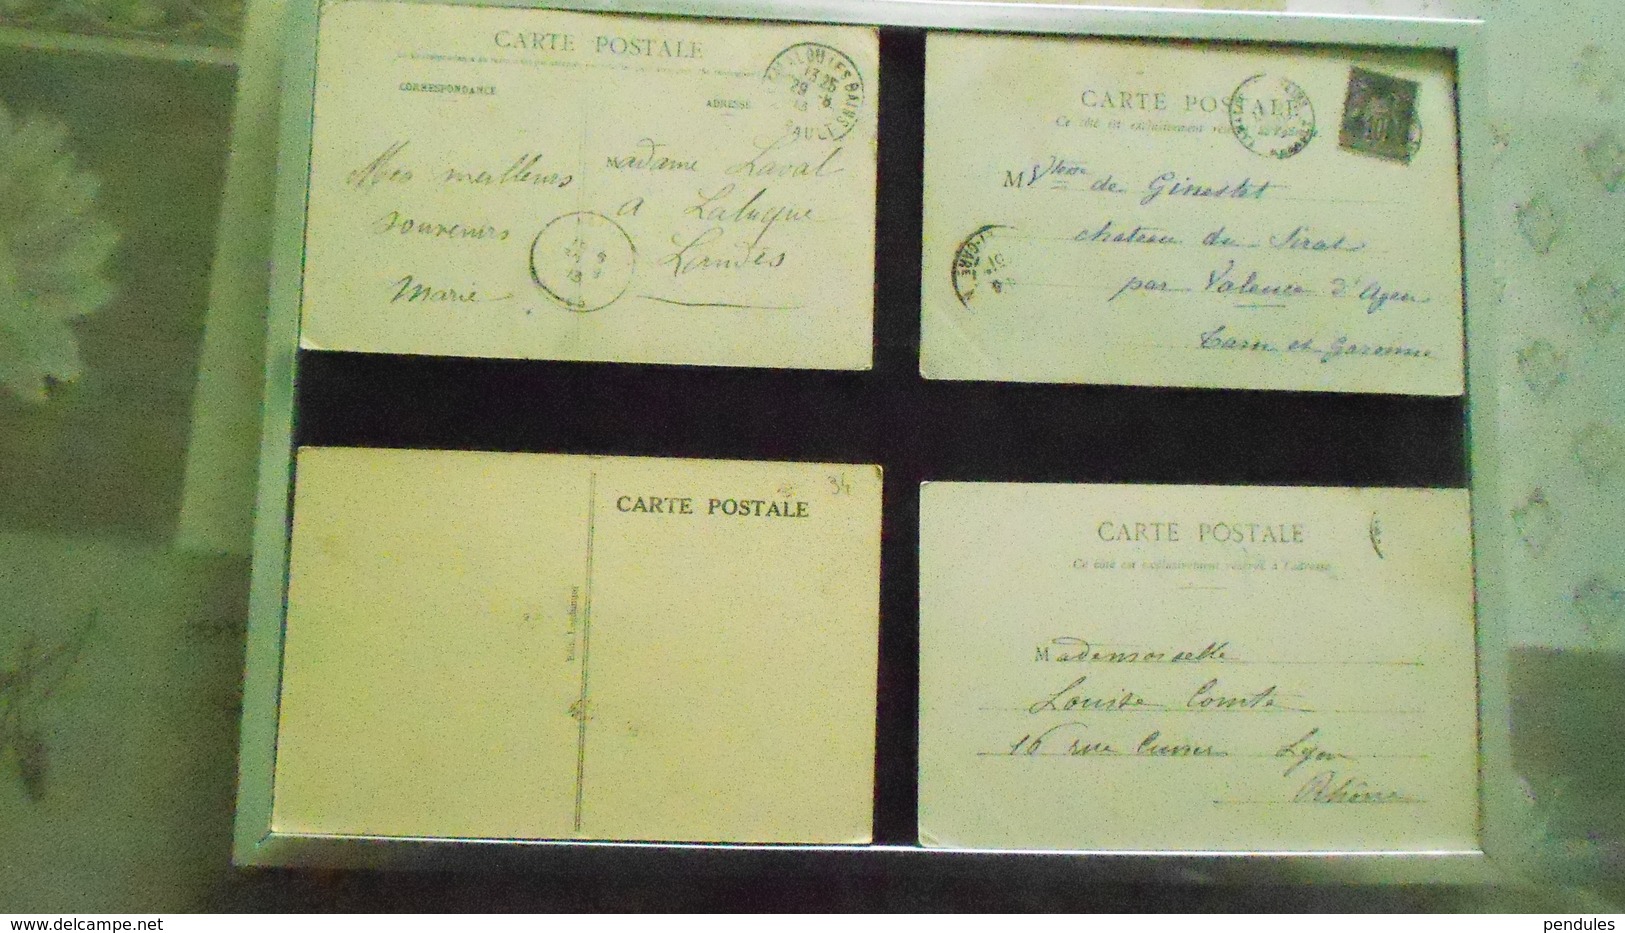 CARTE POSTALE
CORRESPONDANCE
ADRESSE
LES BAINS
13 25
29
Mes meilleurs
souvenirs
Marie
Madame Laval
a Laluque
Landes
CARTE POSTALE
Ce côté est exclusivement
M Vtesse de Ginestet
chateau du Sirat
par Valence d'Agen
Tarn et Garonne
GARE
10
34
CARTE POSTALE
CARTE POSTALE
Ce côté est exclusivement réservé à l'adresse
Mademoiselle
Louise Comte
16 rue Lyon
Rhône
delcampe.net
pendules